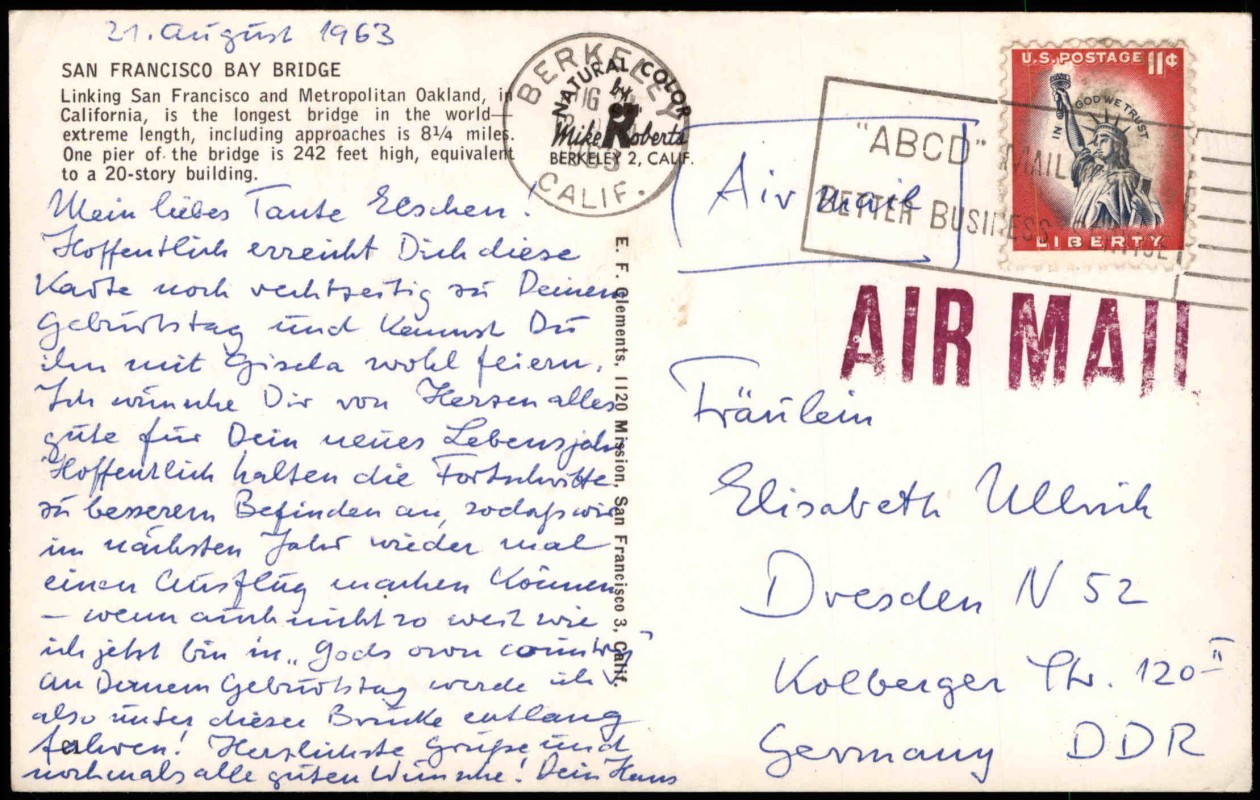 21. August 1963
SAN FRANCISCO BAY BRIDGE
Linking San Francisco and Metropolitan Oakland, in
California, is the longest bridge in the world—
extreme length, including approaches is 8¼ miles.
One pier of the bridge is 242 feet high, equivalent
to a 20-story building.
Mein liebes Tante Elschen!
Hoffentlich erreicht Dich diese
Karte noch rechtzeitig zu Deinem
Geburtstag und kannst Du
ihn mit Gisela wohl feiern.
Ich wünsche Dir von Herzen alles
gute für Dein neues Lebensjahr
Hoffentlich halten die Fortschritte
zu besserem Befinden an, sodaß wir
im nächsten Jahr wieder mal
einen Ausflug machen können
— wenn auch nicht so weit wie
ich jetzt bin in „Gods own country"
an Deinem Geburtstag werde ich
also unter dieser Brücke entlang
fahren! Herzlichste Grüße und
nochmals alle guten Wünsche! Dein Hans
E. F. Clements, 1120 Mission, San Francisco 3, Calif.
BERKELEY
CALIF.
NATURAL COLOR
by
Mike Roberts
BERKELEY 2, CALIF.
"ABCD" MAIL
BETTER BUSINESS
U.S. POSTAGE 11¢
IN GOD WE TRUST
LIBERTY
Air mail
AIR MAIL
Fräulein
Elisabeth Ullrich
Dresden N 52
Kolberger Str. 120 II
Germany DDR